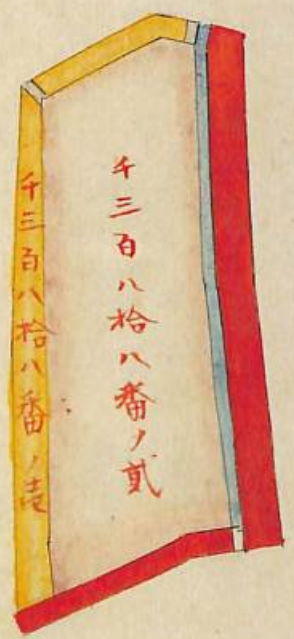 千三百八拾八番ノ貳
千三百八拾八番ノ壱